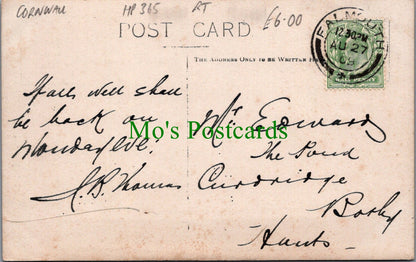 CORNWALL HP 365 RT £6.00
POST CARD
THE ADDRESS ONLY TO BE WRITTEN HERE
FALMOUTH
12.30PM
AU 27
08
If all's well shall
be back on
Monday Eve.
Mr Edwards
The Pond
Curdridge
Botley
Hants
Mo's Postcards